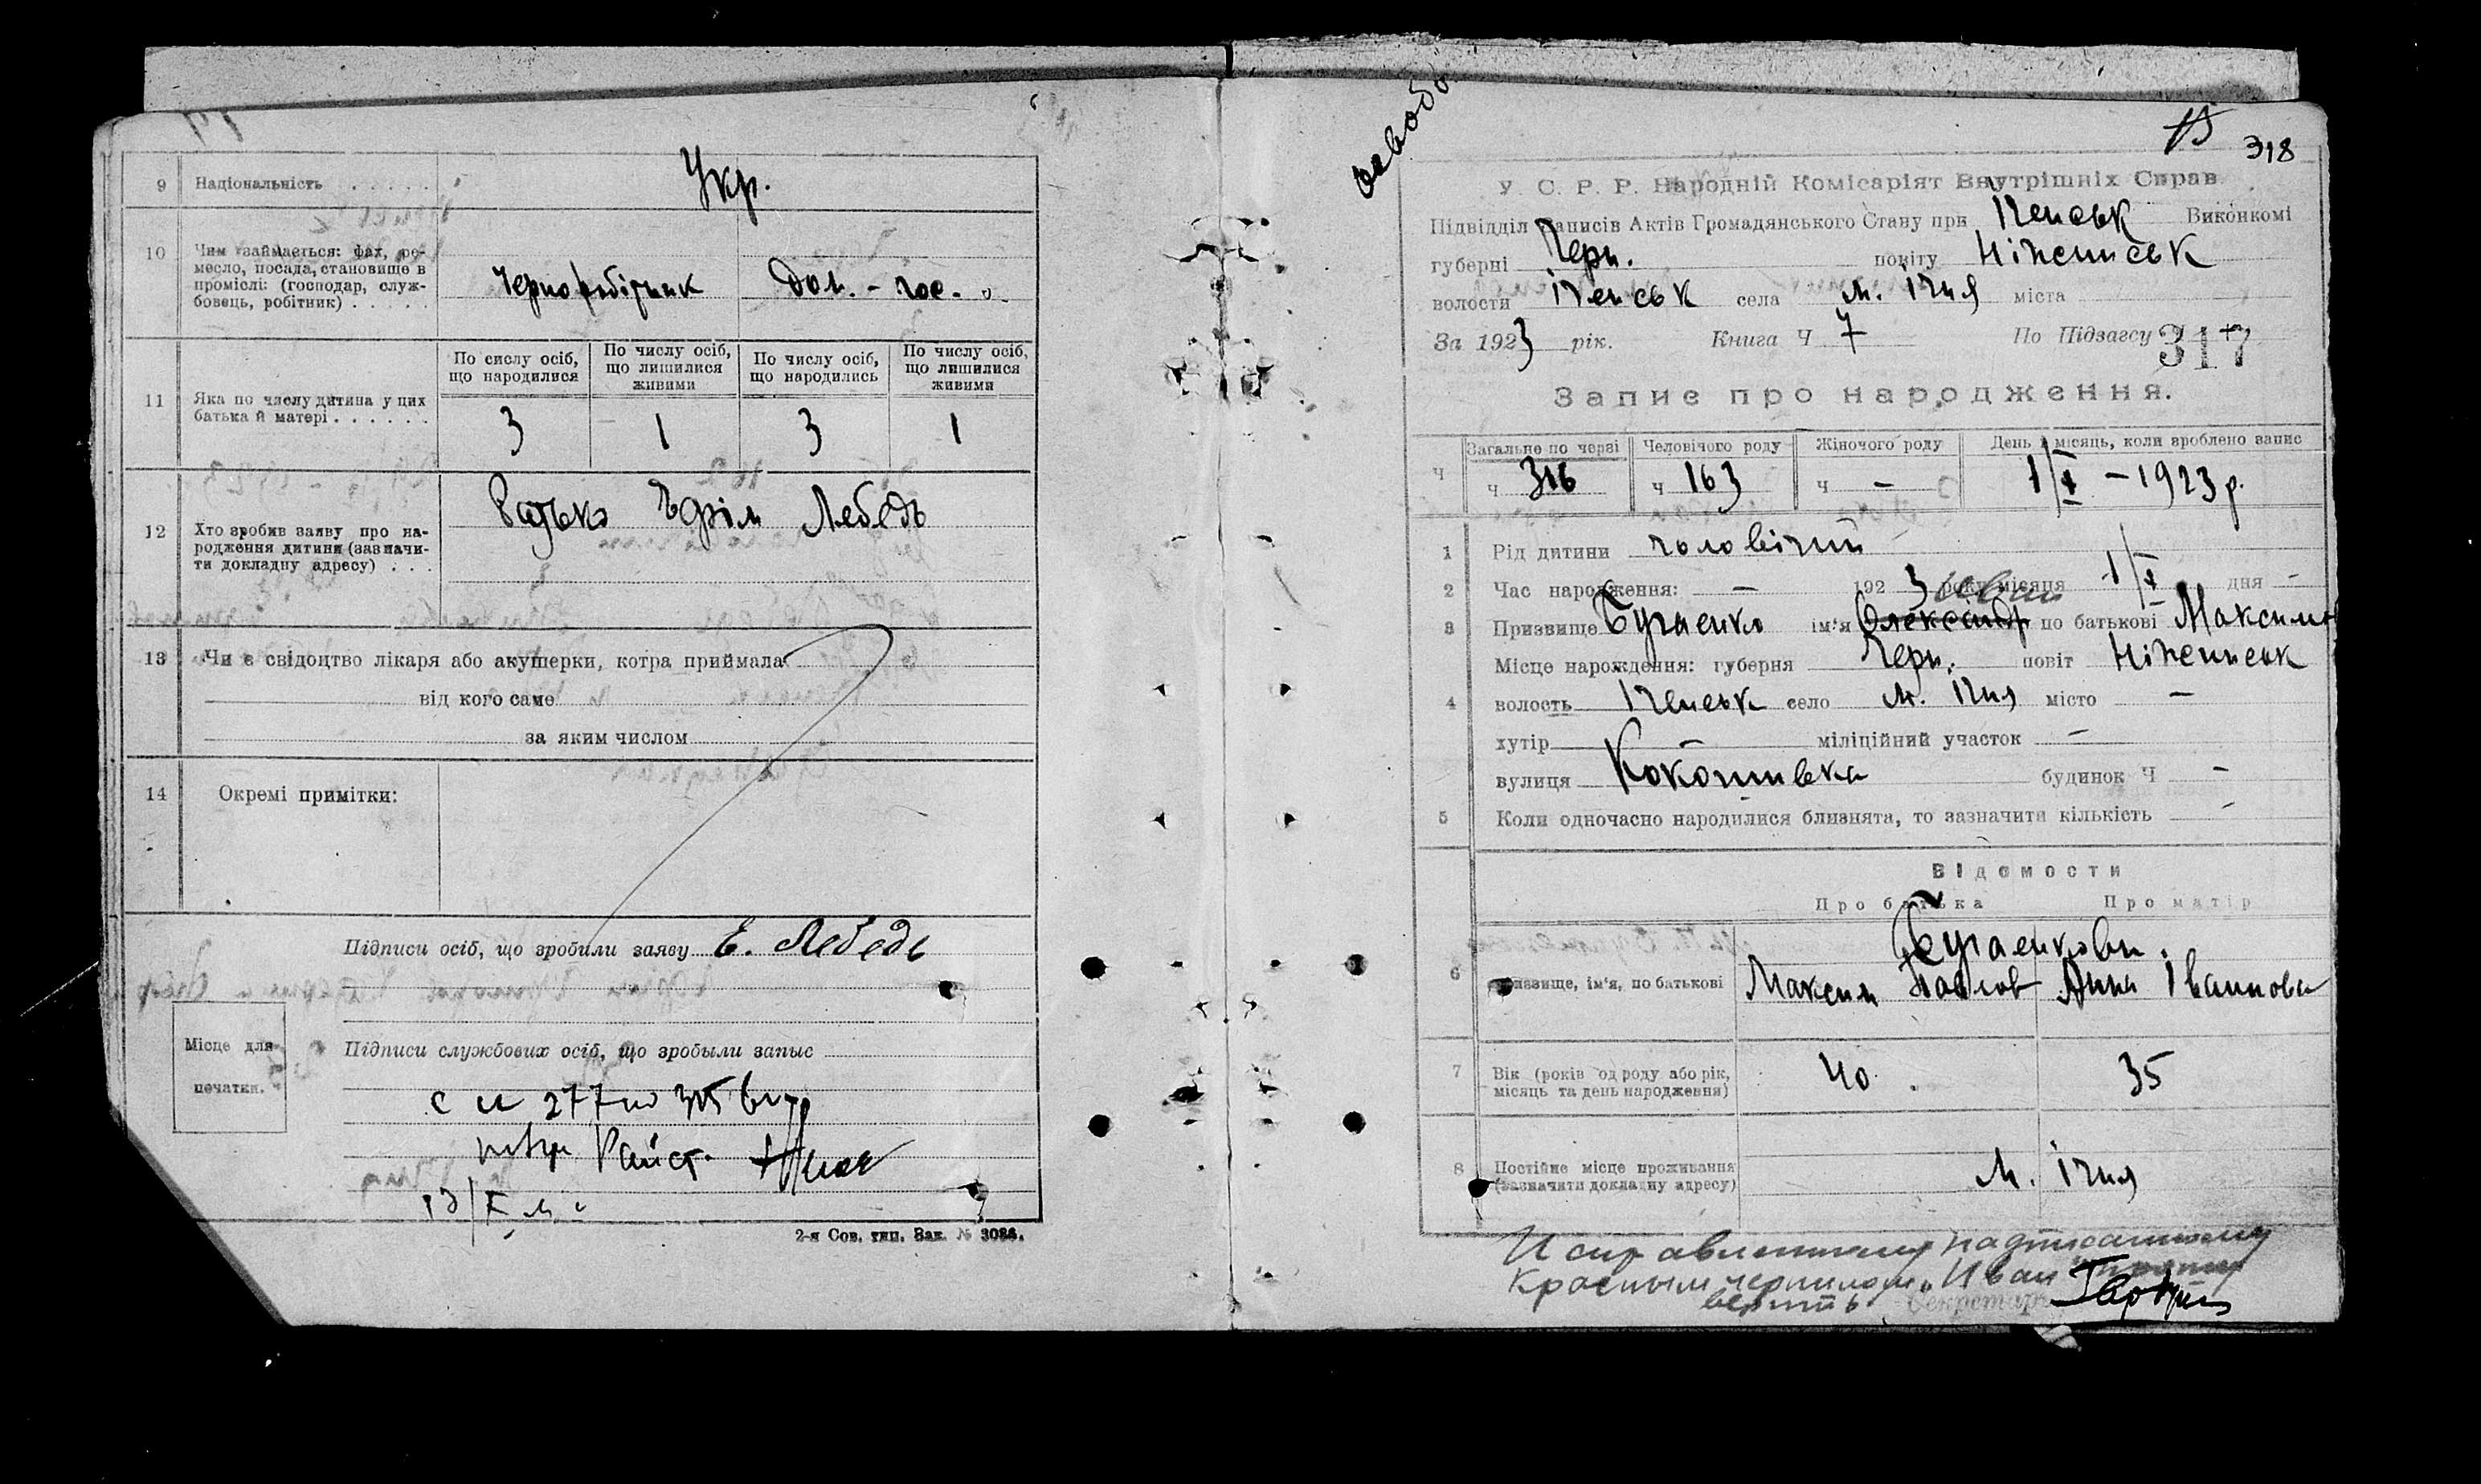 9 Національність . . . . . Укр.
10 Чим займається: фах, ре-
месло, посада, становище в
промислі: (господар, служ-
бовець, робітник) . . . . .
Чернофобітник Дом. - гос.
По сислу осіб,
що народилися
По числу осіб,
що лишилися
живими
По числу осіб,
що народились
По числу осіб,
що лишилися
живими
11 Яка по числу дитина у цих
батька й матері . . . . . .
3 1 3 1
12 Хто зробив заяву про на-
родження дитини (зазначи-
ти докладну адресу) . . .
Батько Єфім Лебедь
13 Чи є свідоцтво лікаря або акушерки, котра приймала
від кого саме
за яким числом
14 Окремі примітки:
Підписи осіб, що зробили заяву Е. Лебедь
Місце для
печатки.
Підписи службових осіб, що зробыли запыс
с 277 по 315
2-я Сов. тип. Зак. № 3086.
318
У. С. Р. Р. Народній Комісаріят Внутрішніх Справ
Підвідділ Записів Актів Громадянського Стану при Іченськ Виконкомі
губерні Черн. повіту Ніженськ
волости Іченськ села м. Ічня міста
За 1923 рік. Книга Ч 7 По Підзагсу 317
Запис про народження.
Ч
Загальне по черзі
ч 316
Человічого роду
ч 163
Жіночого роду
ч —
День і місяць, коли зроблено запис
1/X — 1923 р.
1 Рід дитини чоловічий
2 Час народження: — 1923 року місяця 1/X дня —
Иван
3 Призвище Бугаенко ім'я Олександр по батькові Максимов
4 Місце нарождення: губерня Черн. повіт Ніженськ
волость Іченськ село м. Ічня місто —
хутір — міліційний участок —
вулиця Кокошивка будинок Ч —
5 Коли одночасно народилися близнята, то зазначити кількість —
Відомости
Про батька Про матір
Бугаенкови.
6 Призвище, ім'я, по батькові Максим Павлов Анна Іваннова
7 Вік (років од роду або рік,
місяць та день народження)
40. 35
8 Постійне місце проживання
(зазначити докладну адресу)
м. Ічня
Исправленному надписанному
красным чернилом „Иван"
верить. Секретарь